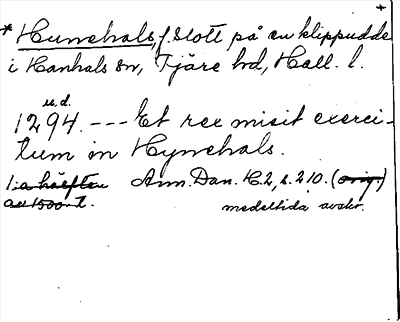 +
* Hunehals, f. slott på en klippudde
i Hanhals sn, Fjäre hd, Hall. l.
u.d.
1294. --- Et rex misit exerci-
tum in Hynehals.
1:a hälften Ann. Dan. H.2, s. 210. (orig.)
av 1500-t. medeltida avskr.